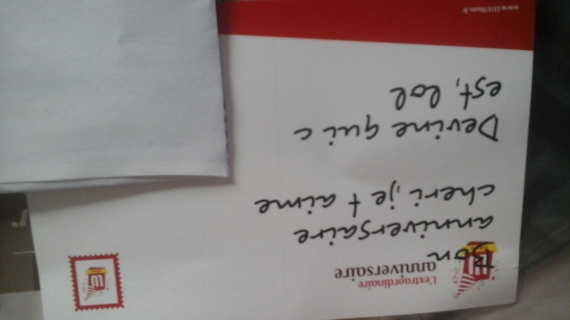 L'extraordinaire
anniversaire
Bon
anniversaire
cheri, je t aime
Devine qui c
est, lol